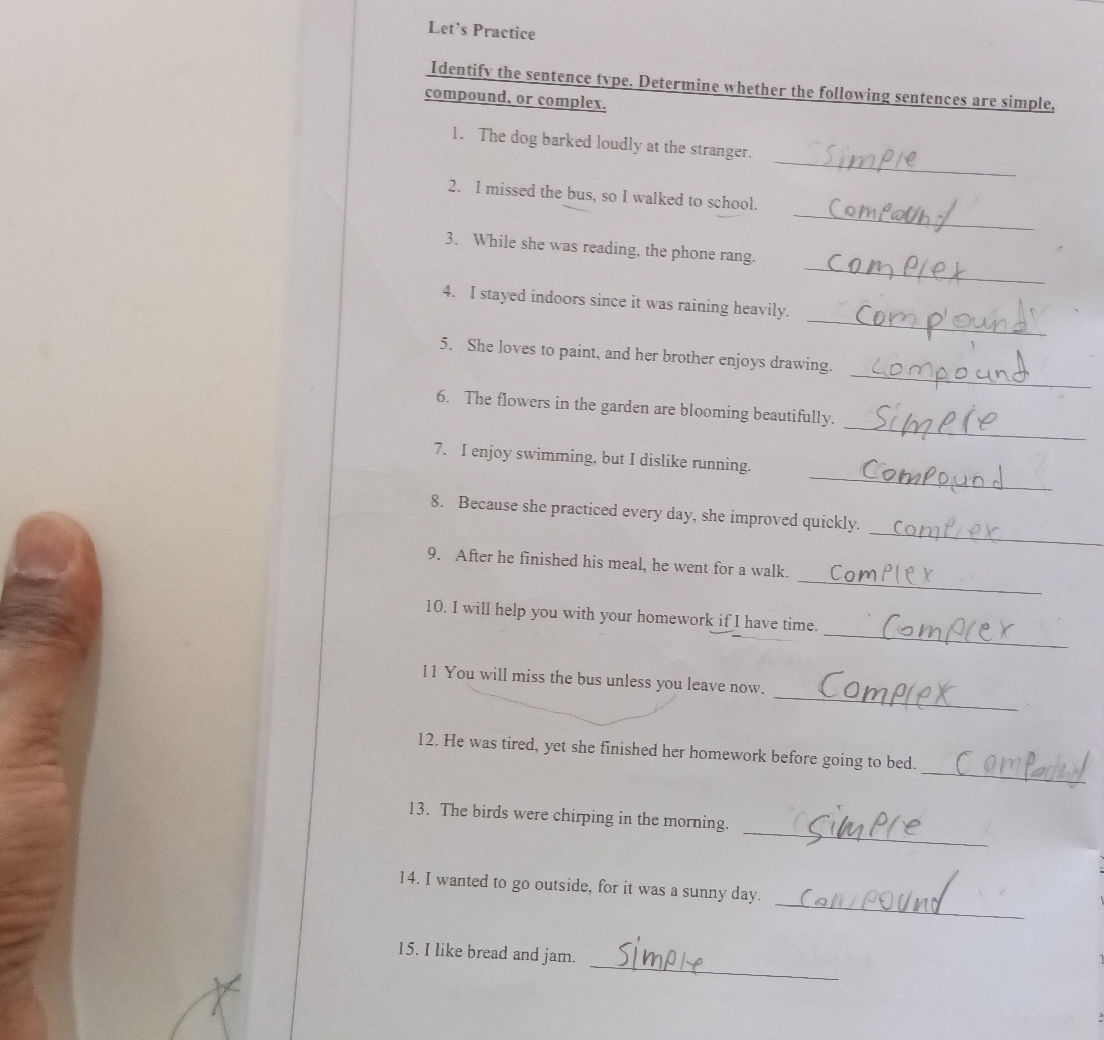 Let's Practice
Identify the sentence type. Determine whether the following sentences are simple,
compound, or complex.
1. The dog barked loudly at the stranger. simple
2. I missed the bus, so I walked to school. compound
3. While she was reading, the phone rang. complex
4. I stayed indoors since it was raining heavily. compound
5. She loves to paint, and her brother enjoys drawing. compound
6. The flowers in the garden are blooming beautifully. simple
7. I enjoy swimming, but I dislike running. compound
8. Because she practiced every day, she improved quickly. complex
9. After he finished his meal, he went for a walk. complex
10. I will help you with your homework if I have time. complex
11 You will miss the bus unless you leave now. complex
12. He was tired, yet she finished her homework before going to bed. compound
13. The birds were chirping in the morning. simple
14. I wanted to go outside, for it was a sunny day. compound
15. I like bread and jam. simple